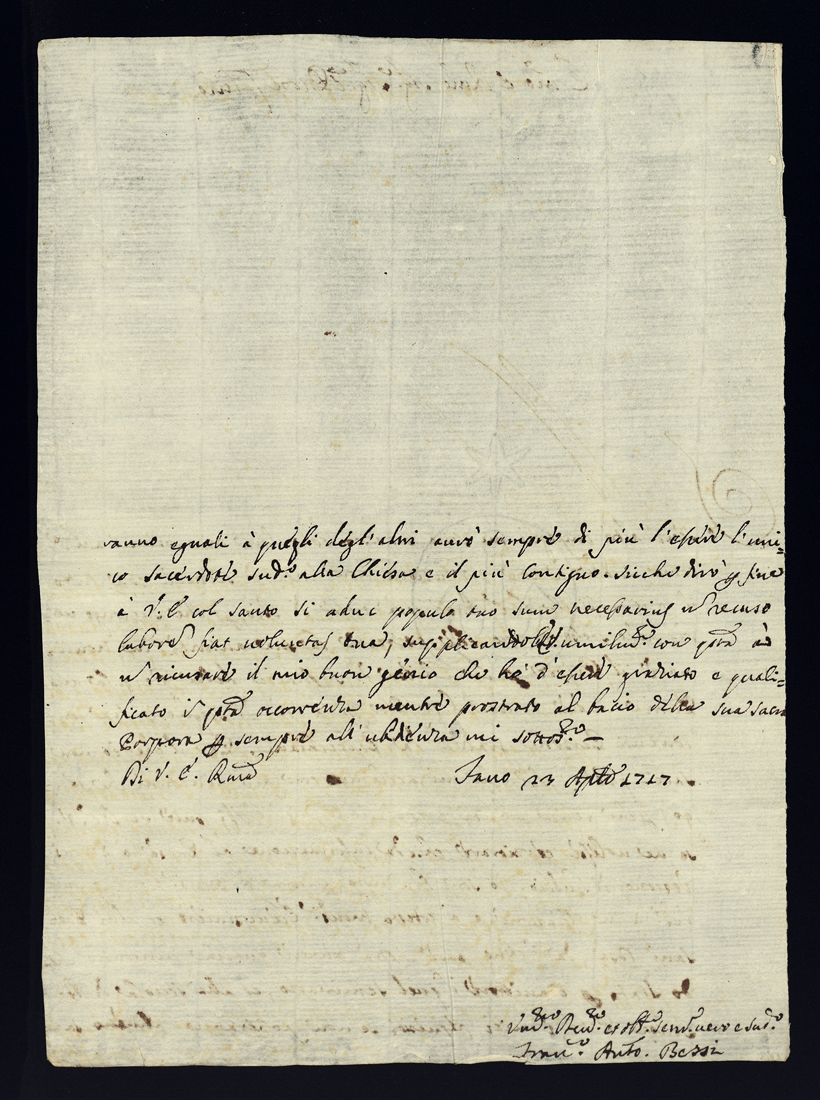 vanno eguali à quegli degl'altri avrò sempre di più l'essere l'uni=
co sacerdote sud.º alla Chiesa e il più contiguo. sicche dirò p fine
à V. E. col santo si aduc populo tuo sum necessarius nõ recuso
laborẽ fiat voluntas tua, supplicandola umilmẽ con q̃sta à
nõ ricusare il mio buon genio che hà d'essere graziato e quali=
ficato ĩ q̃sta occorrenza mentre prostrato al bacio della sua sacra
Porpora p sempre all'ubidienza mi sottos.º —
Di V. E. Rma
Fano 23 1717
Umº. Devº. et obb. serv. vero e sud.º
Franc.º Anto. Bessi